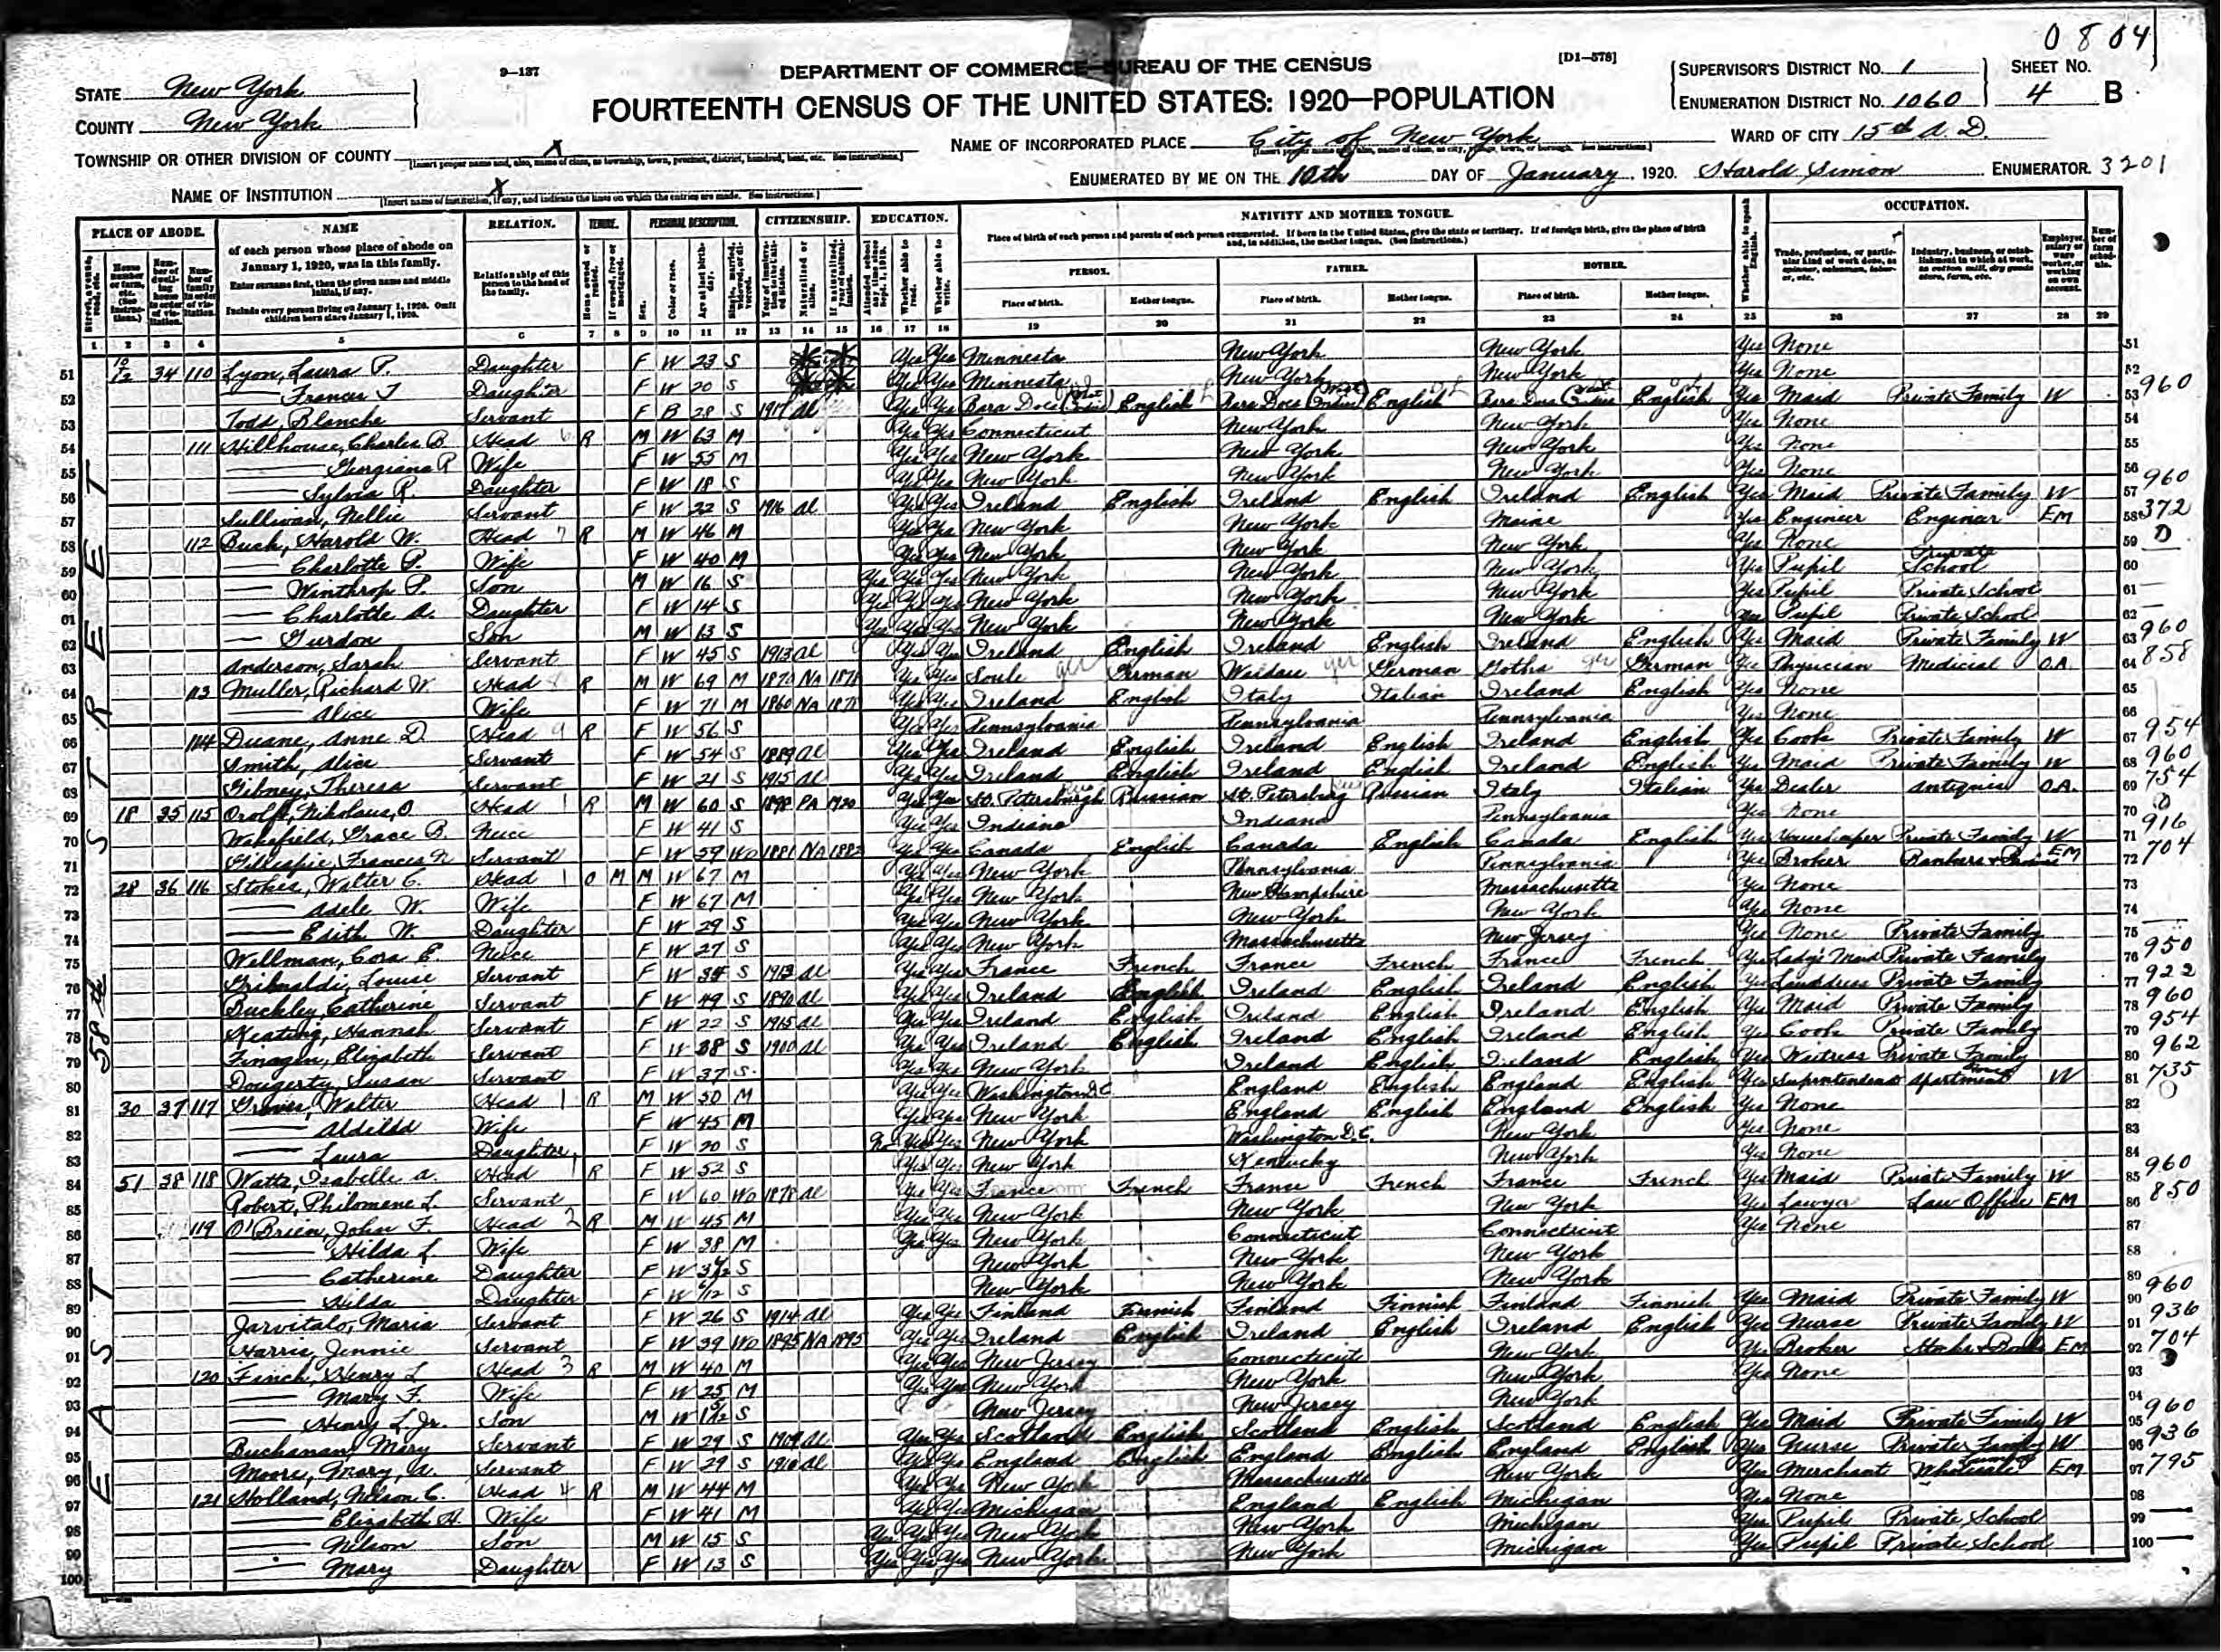 0804
9—137
DEPARTMENT OF COMMERCE—BUREAU OF THE CENSUS
[D1—578]
FOURTEENTH CENSUS OF THE UNITED STATES: 1920—POPULATION
STATE New York
COUNTY New York
SUPERVISOR'S DISTRICT No. 1
ENUMERATION DISTRICT No. 1060
SHEET No. 4 B
TOWNSHIP OR OTHER DIVISION OF COUNTY X
NAME OF INCORPORATED PLACE City of New York
WARD OF CITY 15th A.D.
NAME OF INSTITUTION X
ENUMERATED BY ME ON THE 10th DAY OF January, 1920. Harold Simon ENUMERATOR. 3201
PLACE OF ABODE. NAME RELATION. TENURE. PERSONAL DESCRIPTION. CITIZENSHIP. EDUCATION. NATIVITY AND MOTHER TONGUE. OCCUPATION.
of each person whose place of abode on January 1, 1920, was in this family.
Enter surname first, then the given name and middle initial, if any.
Include every person living on January 1, 1920. Omit children born since January 1, 1920.
Relationship of this person to the head of the family.
Place of birth of each person and parents of each person enumerated. If born in the United States, give the state or territory. If of foreign birth, give the place of birth and, in addition, the mother tongue. (See instructions.)
PERSON. FATHER. MOTHER.
Place of birth. Mother tongue. Place of birth. Mother tongue. Place of birth. Mother tongue.
1 2 3 4 5 6 7 8 9 10 11 12 13 14 15 16 17 18 19 20 21 22 23 24 25 26 27 28 29
EAST 58th STREET
51 10/12 34 110 Lyon, Laura P. Daughter F W 23 S Yes Yes Minnesota New York New York Yes None 51
52 — Frances T Daughter F W 20 S Yes Yes Minnesota New York New York Yes None 52
53 Todd, Blanche Servant F B 28 S 1917 Al Yes Yes Bara Does English Bara Does English English Yes Maid Private Family W 53 960
54 111 Hillhouse, Charles B Head 6 R M W 63 M Yes Yes Connecticut New York New York Yes None 54
55 — Georgiana R Wife F W 55 M Yes Yes New York New York New York Yes None 55
56 — Sylvia R. Daughter F W 18 S Yes Yes New York New York New York Yes None 56
57 Sullivan, Nellie Servant F W 22 S 1916 Al Yes Yes Ireland English Ireland English Ireland English Yes Maid Private Family W 57 960
58 112 Bush, Harold W. Head 7 R M W 46 M Yes Yes New York New York Maine Yes Engineer Engineer EM 58 372
59 — Charlotte P. Wife F W 40 M Yes Yes New York New York New York Yes None 59 0
60 — Winthrop P. Son M W 16 S Yes Yes Yes New York New York New York Yes Pupil Private School 60
61 — Charlotte A. Daughter F W 14 S Yes Yes Yes New York New York New York Yes Pupil Private School 61
62 — Gurdon Son M W 13 S Yes Yes Yes New York New York New York Yes Pupil Private School 62
63 Anderson, Sarah Servant F W 45 S 1913 Al Yes Yes Ireland English Ireland English Ireland English Yes Maid Private Family W 63 960
64 113 Muller, Richard W. Head 8 R M W 69 M 1870 NA 1878 Yes Yes German German Gotha German Yes Physician Medicial O.A. 64 858
65 — Alice Wife F W 71 M 1860 NA 1878 Yes Yes Ireland English Italy Italian Ireland English Yes None 65
66 114 Duane, Anne D. Head 9 R F W 56 S Yes Yes Pennsylvania Pennsylvania Pennsylvania Yes None 66
67 Smith, Alice Servant F W 54 S 1889 Al Yes Yes Ireland English Ireland English Ireland English Yes Cook Private Family W 67 954
68 Gibney, Theresa Servant F W 21 S 1915 Al Yes Yes Ireland English Ireland English Ireland English Yes Maid Private Family W 68 960
69 18 35 115 Nikolaus, O. Head 1 R M W 60 S 1898 PA 1920 Yes Yes St. Petersburgh Russian St. Petersburg Russian Italy Italian Yes Dealer Antiques O.A. 69 754
70 Wakefield, Grace B. Niece F W 41 S Yes Yes Indiana Indiana Pennsylvania Yes None 70
71 Gillespie, Frances N Servant F W 59 Wd 1881 NA 1882 Yes Yes Canada English Canada English Canada English Yes Housekeeper Private Family W 71 916
72 28 36 116 Stokes, Walter C. Head 1 O M M W 67 M Yes Yes New York Pennsylvania Pennsylvania Yes Broker EM 72 704
73 — Adele W. Wife F W 67 M Yes Yes New York New Hampshire Massachusetts Yes None 73
74 — Edith W. Daughter F W 29 S Yes Yes New York New York New York Yes None 74
75 Wellman, Cora E. Niece F W 27 S Yes Yes New York Massachusetts New Jersey Yes None Private Family 75
76 Grimaldi, Louise Servant F W 34 S 1913 Al Yes Yes France French France French France French Yes Lady's Maid Private Family 76 950
77 Buckley, Catherine Servant F W 49 S 1890 Al Yes Yes Ireland English Ireland English Ireland English Yes Laundress Private Family 77 922
78 Keating, Hannah Servant F W 22 S 1915 Al Yes Yes Ireland English Ireland English Ireland English Yes Maid Private Family 78 960
79 Finagan, Elizabeth Servant F W 38 S 1900 Al Yes Yes Ireland English Ireland English Ireland English Yes Cook Private Family 79 954
80 Dougerty, Susan Servant F W 37 S Yes Yes New York Ireland English Ireland English Yes Waitress Private Family 80 962
81 30 37 117 Graves, Walter Head 1 R M W 50 M Yes Yes Washington D.C England English England English Yes Suprintendend Apartment House W 81 735
82 — Wife F W 45 M Yes Yes New York England English England English Yes None 82
83 — Laura Daughter F W 20 S No Yes Yes New York Washington D.C. New York Yes None 83
84 51 38 118 Watts, Isabelle A. Head 1 R F W 52 S Yes Yes New York Kentucky New York Yes None 84
85 Robert, Philomene L. Servant F W 60 Wd 1878 Al Yes Yes France French France French France French Yes Maid Private Family W 85 960
86 119 O'Brien, John F. Head 2 R M W 45 M Yes Yes New York New York New York Yes Lawyer Law Office EM 86 850
87 — Hilda L. Wife F W 38 M Yes Yes New York Connecticut Connecticut Yes None 87
88 — Catherine Daughter F W S New York New York New York 88
89 — Hilda Daughter F W S New York New York New York 89
90 Jarvitalo, Maria Servant F W 26 S 1914 Al Yes Yes Finland Finnish Finland Finnish Finland Finnish Yes Maid Private Family W 90 960
91 Harris, Jennie Servant F W 39 Wd 1895 NA 1895 Yes Yes Ireland English Ireland English Ireland English Yes Nurse Private Family W 91 936
92 120 Finch, Henry L Head 3 R M W 40 M Yes Yes New Jersey Connecticut New York Yes Broker Stocks & Bonds EM 92 704
93 — Mary F. Wife F W 25 M Yes Yes New York New York New York Yes None 93
94 — Henry L Jr. Son M W S New Jersey New Jersey New York 94
95 Buchanan, Mary Servant F W 29 S 1909 Al Yes Yes Scotland English Scotland English Scotland English Yes Maid Private Family W 95 960
96 Moore, Mary, A. Servant F W 29 S 1910 Al Yes Yes England English England English England English Yes Nurse Private Family W 96 936
97 121 Holland, Nelson C. Head 4 R M W 44 M Yes Yes New York Massachusetts New York Yes Merchant Wholesale EM 97 795
98 — Elizabeth H. Wife F W 41 M Yes Yes Michigan England English Michigan Yes None 98
99 — Nelson Son M W 15 S Yes Yes Yes New York New York Michigan Yes Pupil Private School 99
100 — Mary Daughter F W 13 S Yes Yes Yes New York New York Michigan Yes Pupil Private School 100